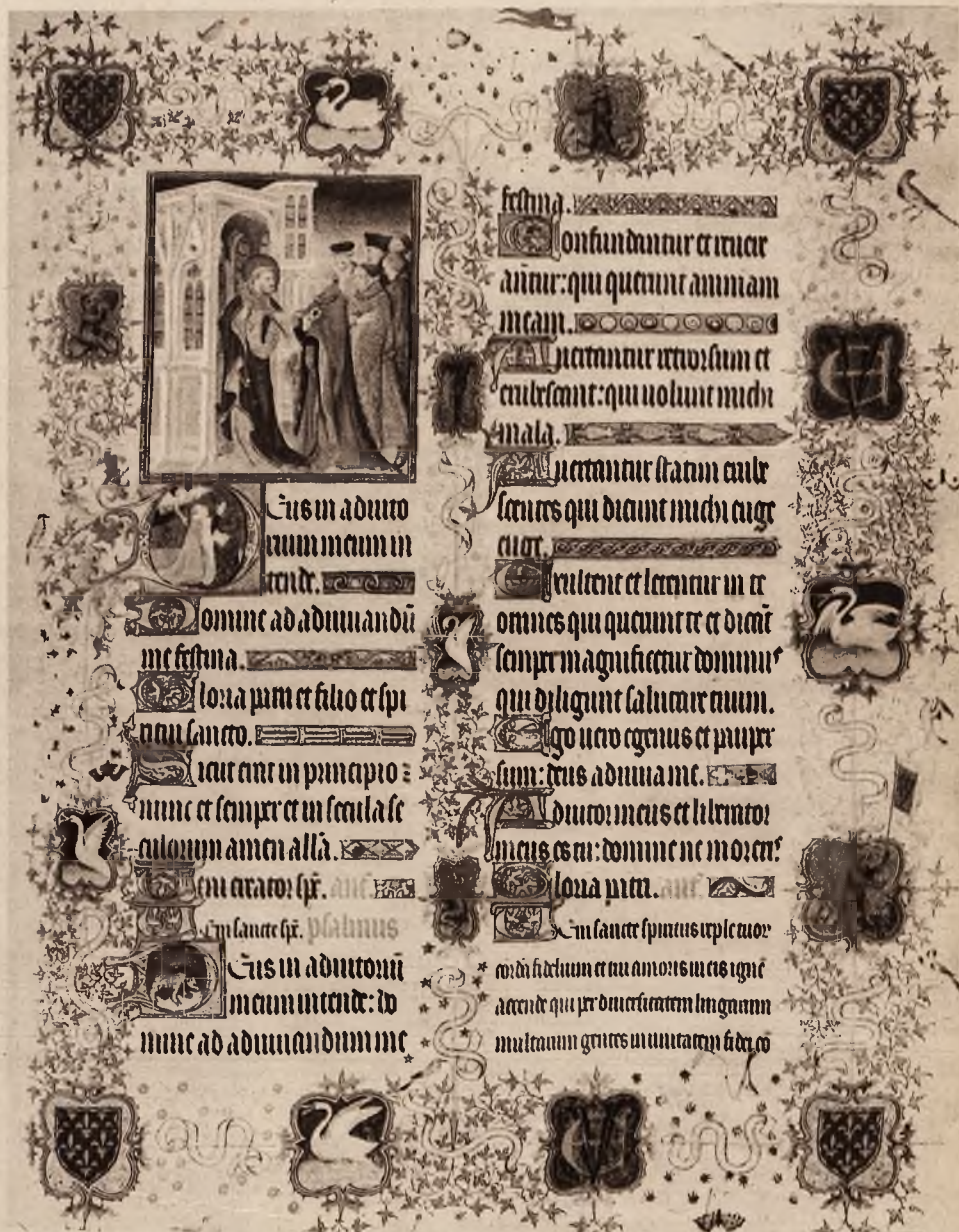 Eus in adiuto
rium meum in
tende.
Domine ad adiuuandū
me festina.
Gloria patri et filio et spi
ritui sancto.
Sicut erat in principio
nunc et semper et in secula se
culorum amen allā.
Veni creator spē. anf
Veni sancte spē. psalmus
Deus in adiutoriū
meum intende: do
mine ad adiuuandum me
festina.
Confundantur et reuere
antur: qui querunt animam
meam.
Auertantur retrorsum et
erubescant: qui uolunt michi
mala.
Auertantur statim erube
scentes qui dicunt michi euge
euge.
Exultent et letentur in te
omnes qui querunt te et dicāt
semper magnificetur dominus
qui diligunt salutare tuum.
Ego uero egenus et pauper
sum: deus adiuua me.
Adiutor meus et liberator
meus es tu: domine ne moreris
Gloria patri. anf
Veni sancte spiritus reple tuorū
corda fidelium et tui amoris in eis ignē
accende qui per diuersitatem linguarum
multarum gentes in unitatem fidei cō